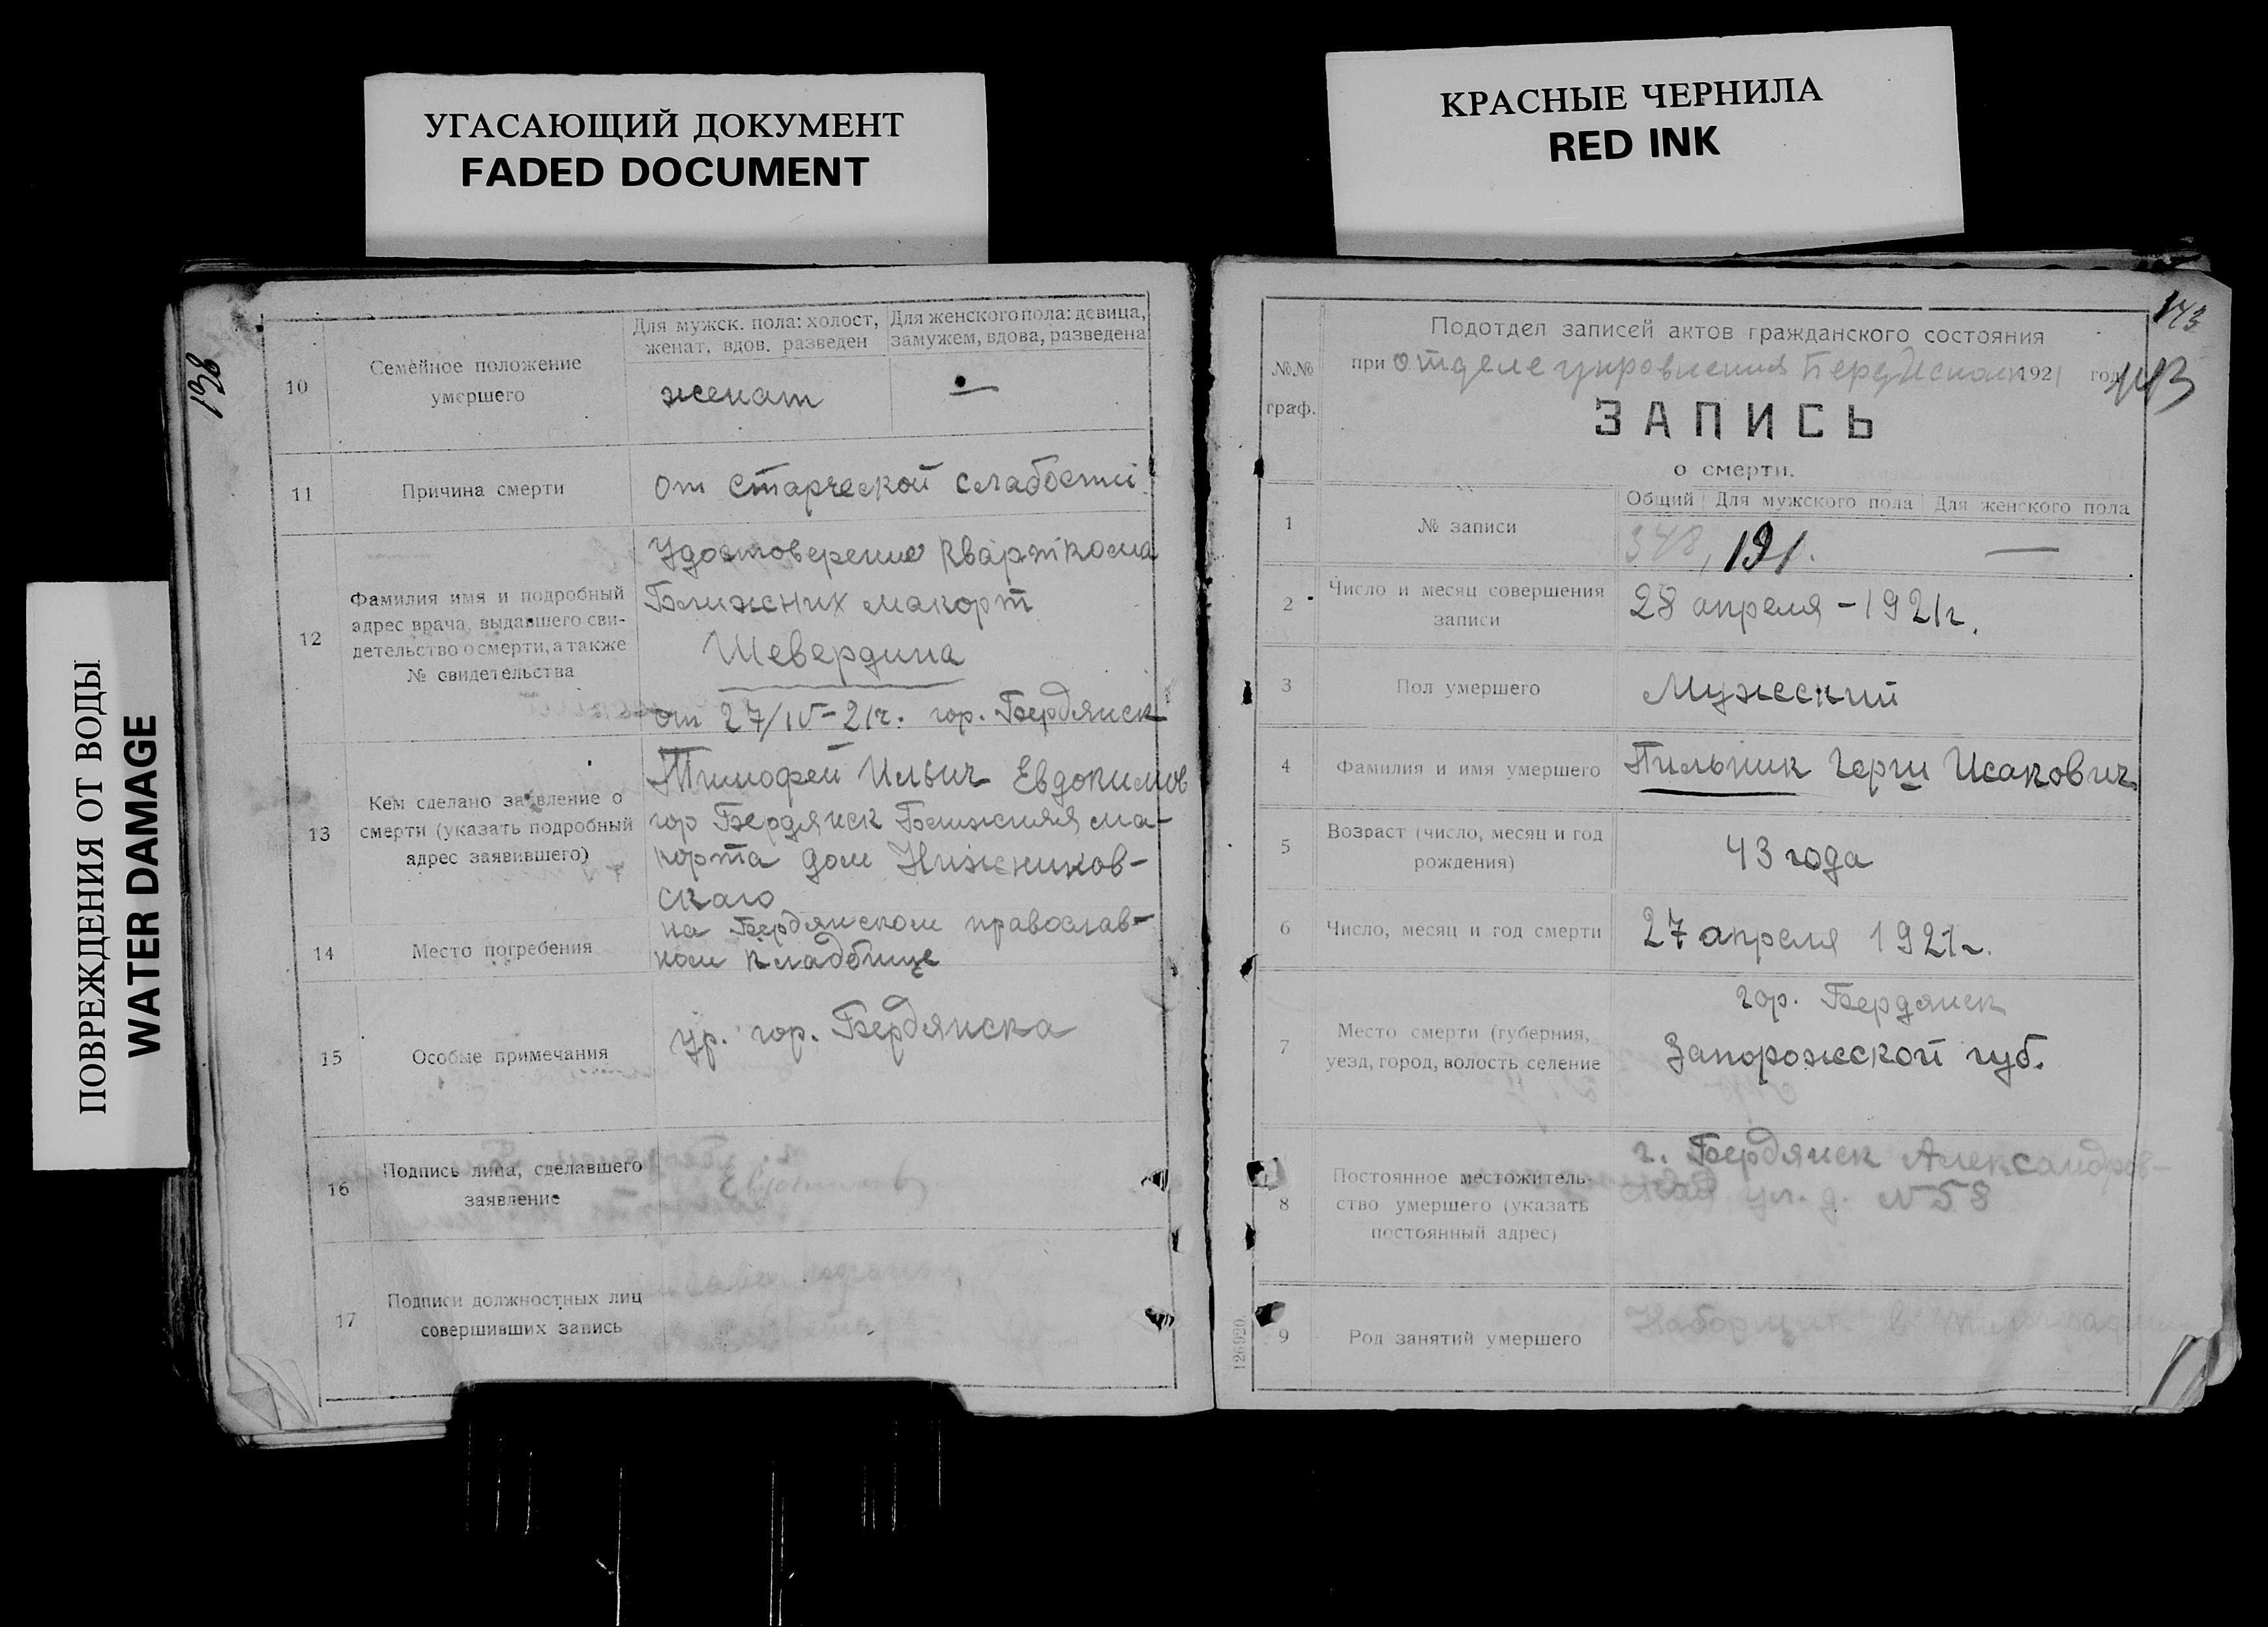 УГАСАЮЩИЙ ДОКУМЕНТ
FADED DOCUMENT
КРАСНЫЕ ЧЕРНИЛА
RED INK
ПОВРЕЖДЕНИЯ ОТ ВОДЫ
WATER DAMAGE
138
10
Семейное положение
умершего
Для мужск. пола: холост,
женат, вдов, разведен
Для женского пола: девица,
замужем, вдова, разведена
женат
—
11
Причина смерти
от старческой слабости
12
Фамилия имя и подробный
адрес врача, выдавшего сви-
детельство о смерти, а также
№ свидетельства
Удостоверение Кварткома
Ближних макорт
Шевердина
от 27/IV-21г. гор. Бердянск
13
Кем сделано заявление о
смерти (указать подробный
адрес заявившего)
Тимофей Ильич Евдокимов
гор Бердянск Ближняя ма-
корта дом Нижников-
скаго
14
Место погребения
на Бердянском православ-
ном кладбище
15
Особые примечания
ур. гор. Бердянска
16
Подпись лица, сделавшего
заявление
17
Подписи должностных лиц
совершивших запись
143
143
№№
граф.
Подотдел записей актов гражданского состояния
при отделе управления 1921 год
ЗАПИСЬ
о смерти.
1
№ записи
Общий Для мужского пола Для женского пола
348, 191. —
2
Число и месяц совершения
записи
28 апреля - 1921г.
3
Пол умершего
Мужеский
4
Фамилия и имя умершего
Пильник Герш Исакович
5
Возраст (число, месяц и год
рождения)
43 года
6
Число, месяц и год смерти
27 апреля 1921г.
7
Место смерти (губерния,
уезд, город, волость селение
гор. Бердянск
Запорожской губ.
8
Постоянное местожитель-
ство умершего (указать
постоянный адрес)
г. Бердянск Александров-
ская ул. д. №58
9
Род занятий умершего
Наборщик в
126920.